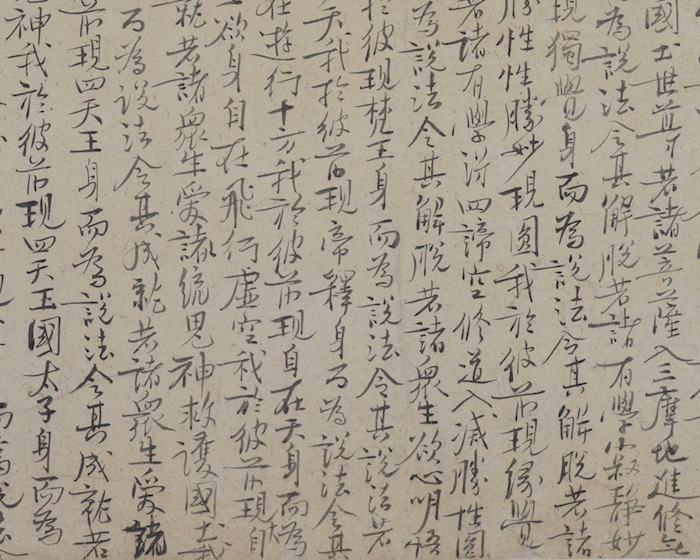 國土世尊若諸菩薩入三摩地進修無
為說法令其解脫若諸有學寂靜妙
現獨覺身而為說法令其解脫若諸
勝性性勝妙現圓我於彼前現緣覺
若諸有學得四諦空修道入滅勝性圓
為說法令其解脫若諸衆生欲心明悟
於彼現梵王身而為說法令其說若
天我於彼前現帝釋身而為說法令其
在遊行十方我於彼前現自在天身而為
欲身自在飛行虛空我於彼前現自
就若諸衆生愛諸統鬼神救護國土我
而為說法令其成就若諸衆生愛諸
前現四天王身而為說法令其成就若
神我於彼前現四天王國太子身而為
而為說法